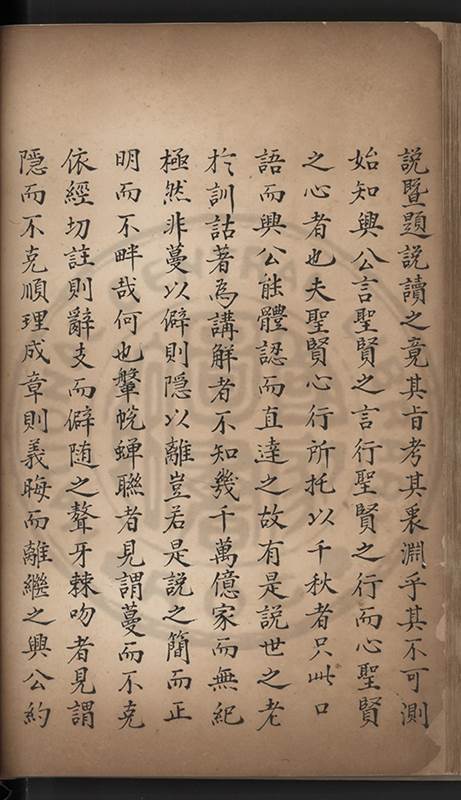 説暨題説讀之竟其旨考其衷淵乎其不可測
始知興公言聖賢之言行聖賢之行而心聖賢
之心者也夫聖賢心行所托以千秋者只此口
語而興公能體認而直達之故有是説世之老
於訓詁著爲講解者不知幾千萬億家而無紀
極然非蔓以僻則隠以離豈若是説之簡而正
明而不畔哉何也鞶帨蟬聯者見謂蔓而不克
依經切註則辭支而僻随之聱牙棘吻者見謂
隠而不克順理成章則義晦而離繼之興公約